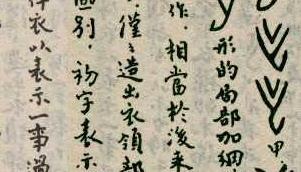 甲
形的局部加綱
作，相當於後来
，僅僅造出衣領部
區別，初字表示
衣以表示一事過